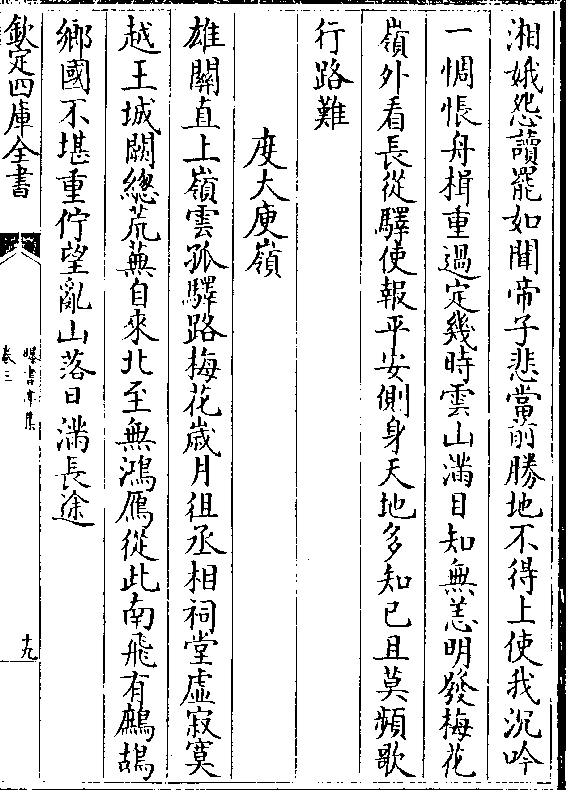 湘娥怨讀罷如聞帝子悲當前勝地不得上使我沉吟
一惆悵舟楫重過定幾時雲山滿目知無恙明發梅花
嶺外看長從驛使報平安側身天地多知已且莫頻歌
行路難
度大庾嶺
雄關直上嶺雲孤驛路梅花嵗月徂丞相祠堂虛寂寞
越王城闕總荒蕪自來北至無鴻鴈從此南飛有鷓鴣
鄉國不堪重佇望亂山落日滿長途
欽定四庫全書
曝書亭集
卷三
十九